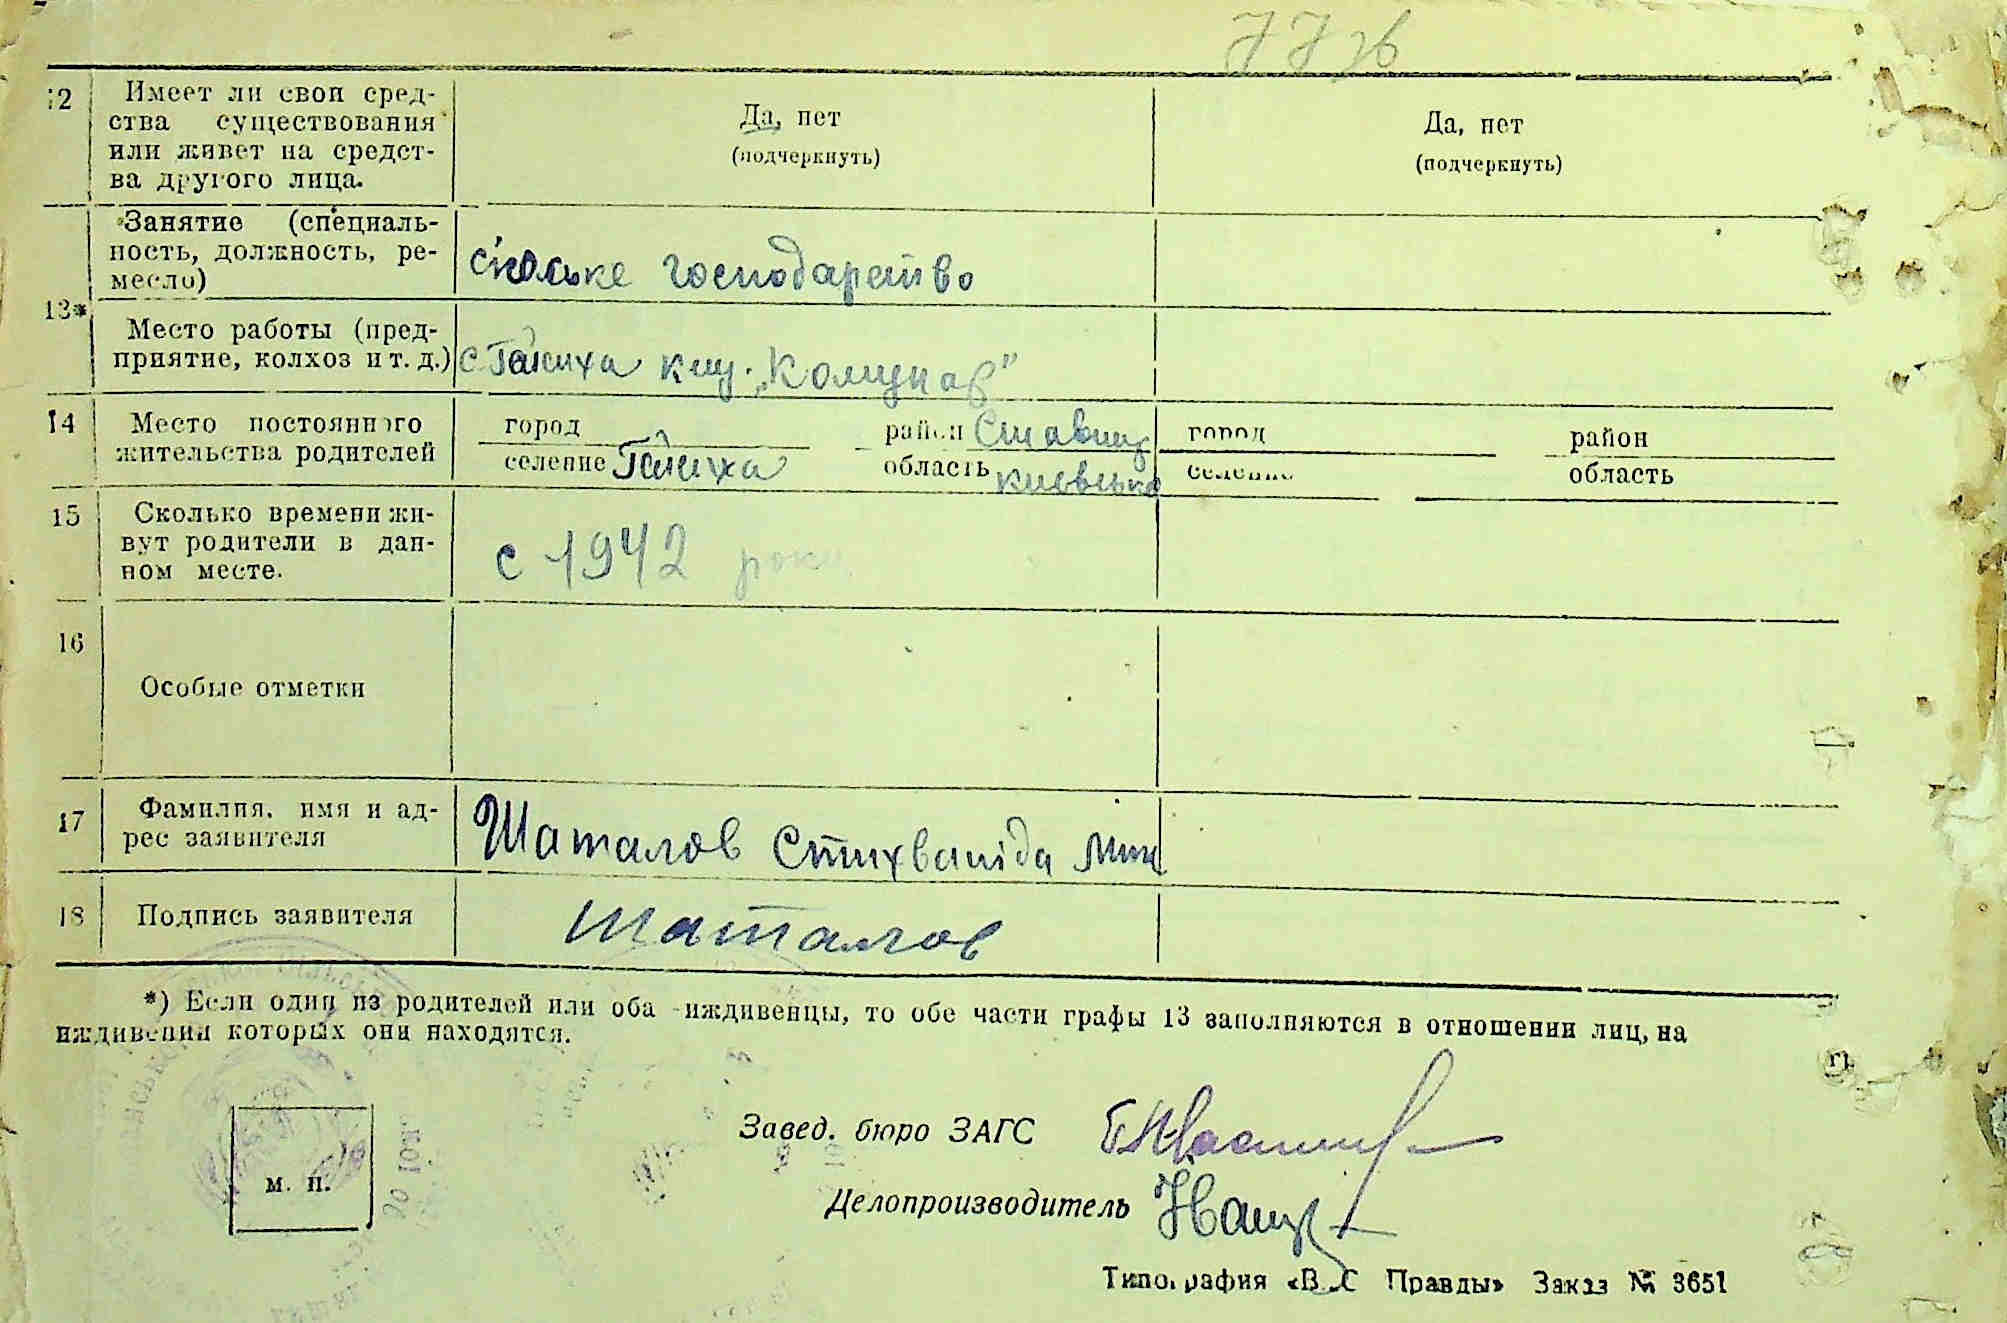 12 Имеет ли свои сред-
ства существования
или живет на средст-
ва другого лица.
Да, нет
(подчеркнуть)
Да, нет
(подчеркнуть)
13*
Занятие (специаль-
ность, должность, ре-
месло)
сільське господарство
Место работы (пред-
приятие, колхоз и т. д.)
14 Место постоянного
жительства родителей
город район Ставищ
селение область Київська
город район
селение область
15 Сколько времени жи-
вут родители в дан-
ном месте.
с 1942 року
16
Особые отметки
17 Фамилия, имя и ад-
рес заявителя
Шаталов
18 Подпись заявителя
Шаталов
*) Если один из родителей или оба иждивенцы, то обе части графы 13 заполняются в отношении лиц, на
иждивении которых они находятся.
Завед. бюро ЗАГС
м. п.
Делопроизводитель
Типография «В С Правды» Заказ № 3651